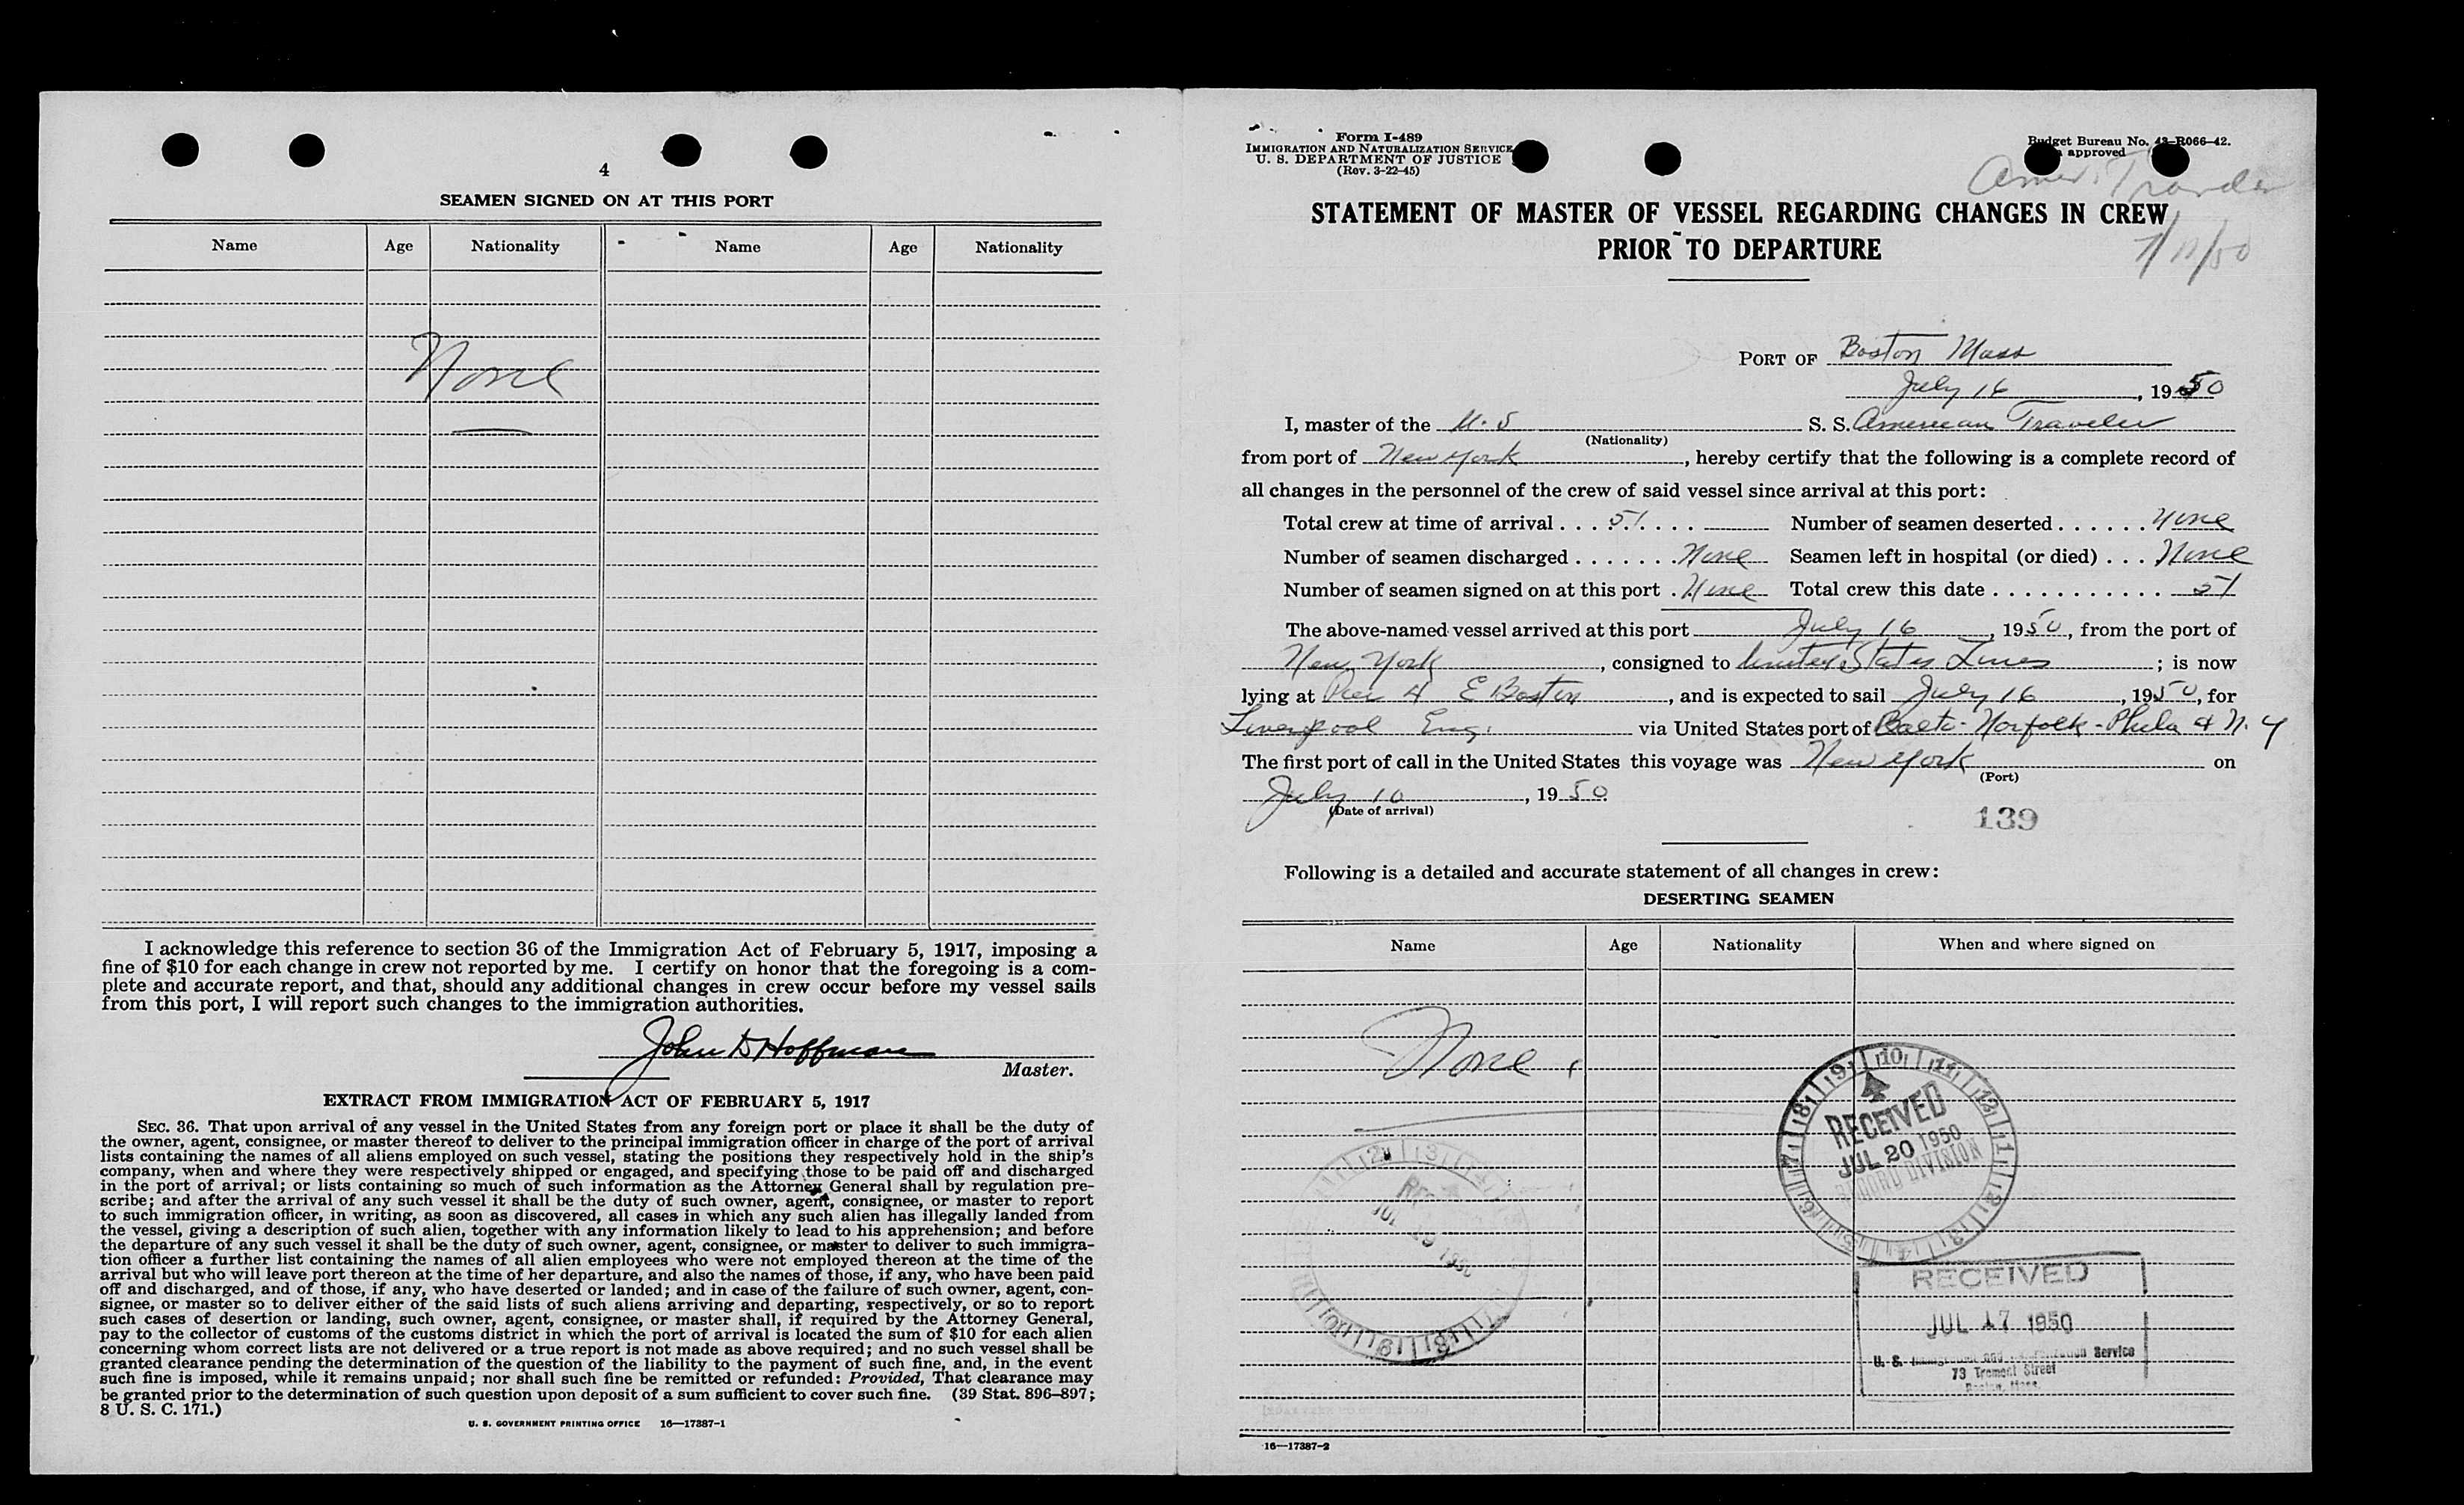 4
SEAMEN SIGNED ON AT THIS PORT
Name Age Nationality Name Age Nationality
None
I acknowledge this reference to section 36 of the Immigration Act of February 5, 1917, imposing a
fine of $10 for each change in crew not reported by me. I certify on honor that the foregoing is a com-
plete and accurate report, and that, should any additional changes in crew occur before my vessel sails
from this port, I will report such changes to the immigration authorities.
John D Hoffman
Master.
EXTRACT FROM IMMIGRATION ACT OF FEBRUARY 5, 1917
SEC. 36. That upon arrival of any vessel in the United States from any foreign port or place it shall be the duty of
the owner, agent, consignee, or master thereof to deliver to the principal immigration officer in charge of the port of arrival
lists containing the names of all aliens employed on such vessel, stating the positions they respectively hold in the ship's
company, when and where they were respectively shipped or engaged, and specifying those to be paid off and discharged
in the port of arrival; or lists containing so much of such information as the Attorney General shall by regulation pre-
scribe; and after the arrival of any such vessel it shall be the duty of such owner, agent, consignee, or master to report
to such immigration officer, in writing, as soon as discovered, all cases in which any such alien has illegally landed from
the vessel, giving a description of such alien, together with any information likely to lead to his apprehension; and before
the departure of any such vessel it shall be the duty of such owner, agent, consignee, or master to deliver to such immigra-
tion officer a further list containing the names of all alien employees who were not employed thereon at the time of the
arrival but who will leave port thereon at the time of her departure, and also the names of those, if any, who have been paid
off and discharged, and of those, if any, who have deserted or landed; and in case of the failure of such owner, agent, con-
signee, or master so to deliver either of the said lists of such aliens arriving and departing, respectively, or so to report
such cases of desertion or landing, such owner, agent, consignee, or master shall, if required by the Attorney General,
pay to the collector of customs of the customs district in which the port of arrival is located the sum of $10 for each alien
concerning whom correct lists are not delivered or a true report is not made as above required; and no such vessel shall be
granted clearance pending the determination of the question of the liability to the payment of such fine, and, in the event
such fine is imposed, while it remains unpaid; nor shall such fine be remitted or refunded: Provided, That clearance may
be granted prior to the determination of such question upon deposit of a sum sufficient to cover such fine. (39 Stat. 896–897;
8 U. S. C. 171.)
U. S. GOVERNMENT PRINTING OFFICE 16—17387-1
Form I-489
IMMIGRATION AND NATURALIZATION SERVICE
U. S. DEPARTMENT OF JUSTICE
(Rev. 3-22-45)
Budget Bureau No. 43-R066-42.
approved
Amer.
STATEMENT OF MASTER OF VESSEL REGARDING CHANGES IN CREW
PRIOR TO DEPARTURE
PORT OF Boston Mass
July 16, 1950
I, master of the U.S S. S. American Traveler
(Nationality)
from port of New York, hereby certify that the following is a complete record of
all changes in the personnel of the crew of said vessel since arrival at this port:
Total crew at time of arrival . . . 51 . . . . Number of seamen deserted . . . . . . None
Number of seamen discharged . . . . . . . None Seamen left in hospital (or died) . . . None
Number of seamen signed on at this port . None Total crew this date . . . . . . . . . . . 51
The above-named vessel arrived at this port July 16, 1950, from the port of
New York, consigned to United States Lines; is now
lying at Pier 4 E Boston, and is expected to sail July 16, 1950, for
Liverpool Eng. via United States port of Balto-Norfolk-Phila & N.Y
The first port of call in the United States this voyage was New York on
(Port)
July 10, 1950
(Date of arrival)
139
Following is a detailed and accurate statement of all changes in crew:
DESERTING SEAMEN
Name Age Nationality When and where signed on
None
RECEIVED
JUL 20 1950
RECORD DIVISION
JUL 19 1950
RECEIVED
JUL 17 1950
U. S. Immigration and Naturalization Service
73 Tremont Street
Boston, Mass.
16—17387-2